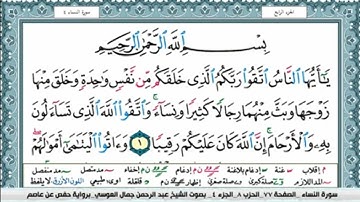 الجزء الرابع
سورة النساء ٤
بِسْمِ ٱللَّهِ ٱلرَّحْمَٰنِ ٱلرَّحِيمِ
يَٰٓأَيُّهَا ٱلنَّاسُ ٱتَّقُوا۟ رَبَّكُمُ ٱلَّذِى خَلَقَكُم مِّن نَّفْسٍ وَٰحِدَةٍ وَخَلَقَ مِنْهَا
زَوْجَهَا وَبَثَّ مِنْهُمَا رِجَالًا كَثِيرًا وَنِسَآءً ۚ وَٱتَّقُوا۟ ٱللَّهَ ٱلَّذِى تَسَآءَلُونَ
بِهِۦ وَٱلْأَرْحَامَ ۚ إِنَّ ٱللَّهَ كَانَ عَلَيْكُمْ رَقِيبًا ١ وَءَاتُوا۟ ٱلْيَتَٰمَىٰٓ أَمْوَٰلَهُمْ ۖ
سورة النساء _ الصفحة ٧٧_ الحزب ٨_ الجزء ٤_ بصوت الشيخ عبد الرحمن جمال العوسي_ برواية حفص عن عاصم